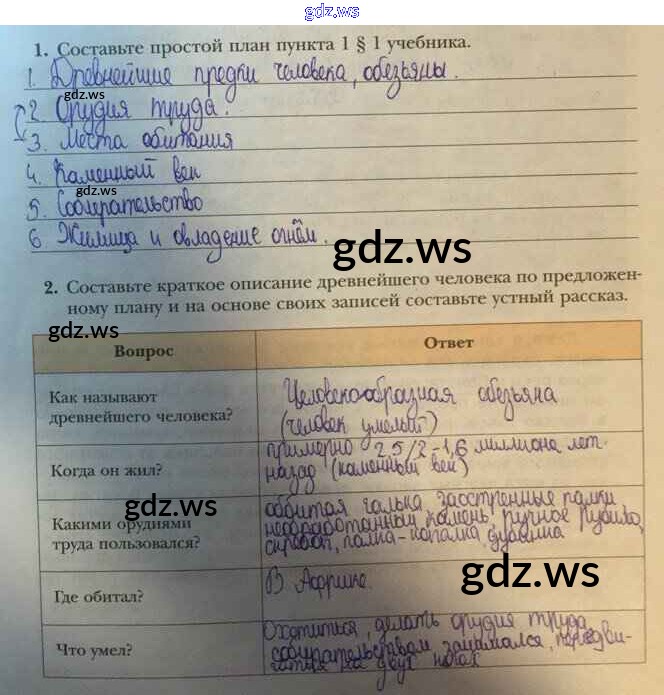 gdz.ws
1. Составьте простой план пункта 1 § 1 учебника.
1. Древнейшие предки человека, обезьяны.
gdz.ws
2. Орудия труда.
3. Места обитания
4. Каменный век
gdz.ws
5. Собирательство
6. Жилища и овладение огнём.
gdz.ws
2. Составьте краткое описание древнейшего человека по предложен-
ному плану и на основе своих записей составьте устный рассказ.
gdz.ws
Вопрос
Ответ
Как называют
древнейшего человека?
Человекообразная обезьяна
(человек умелый)
Когда он жил?
примерно 2,5/2-1,6 миллиона лет
назад (каменный век)
gdz.ws
Какими орудиями
труда пользовался?
оббитая галька заостренные палки
необработанный камень, ручное рубило,
палка-копалка дубина
gdz.ws
Где обитал?
В Африке.
Что умел?
Охотиться, делать орудия труда,
занимался, передви-
двух ногах